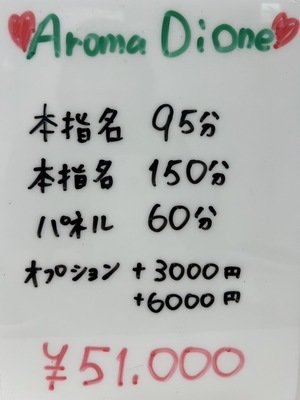 Aroma Dione
本指名 95分
本指名 150分
パネル 60分
オプション +3000円
+6000円
¥51.000